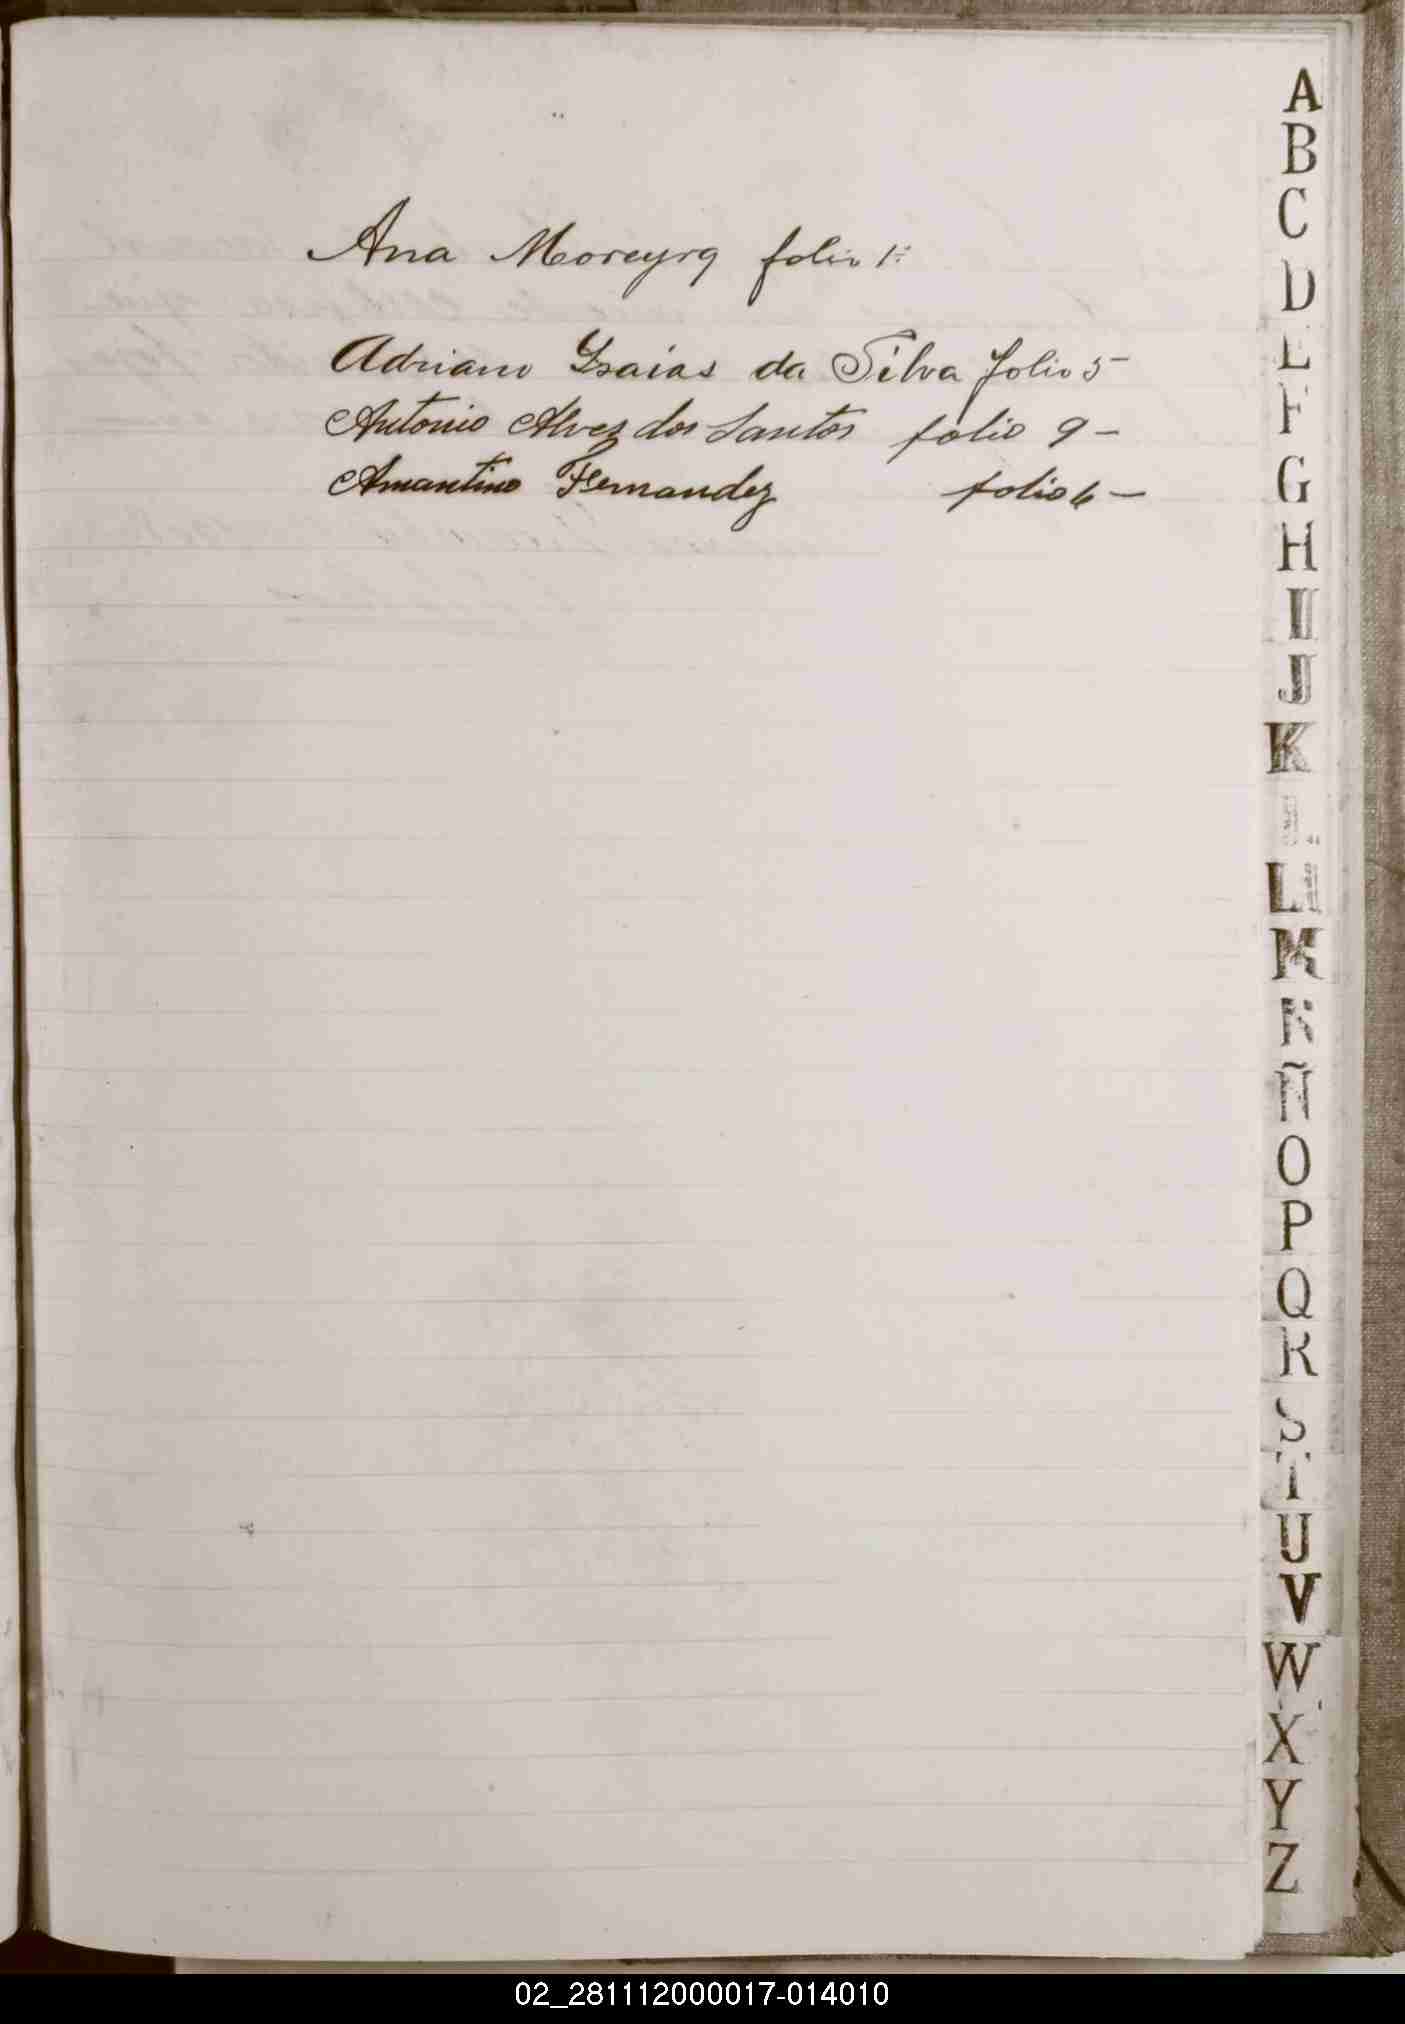 Ana Moreyra folio 1º
Adriano Ysaias da Silva folio 5-
Antonio Alvez dos Santos folio 9 -
Amantino Fernandez folio 6 -
A
B
C
D
E
F
G
H
I
J
K
L
Ll
M
N
Ñ
O
P
Q
R
S
T
U
V
W
X
Y
Z
02_281112000017-014010